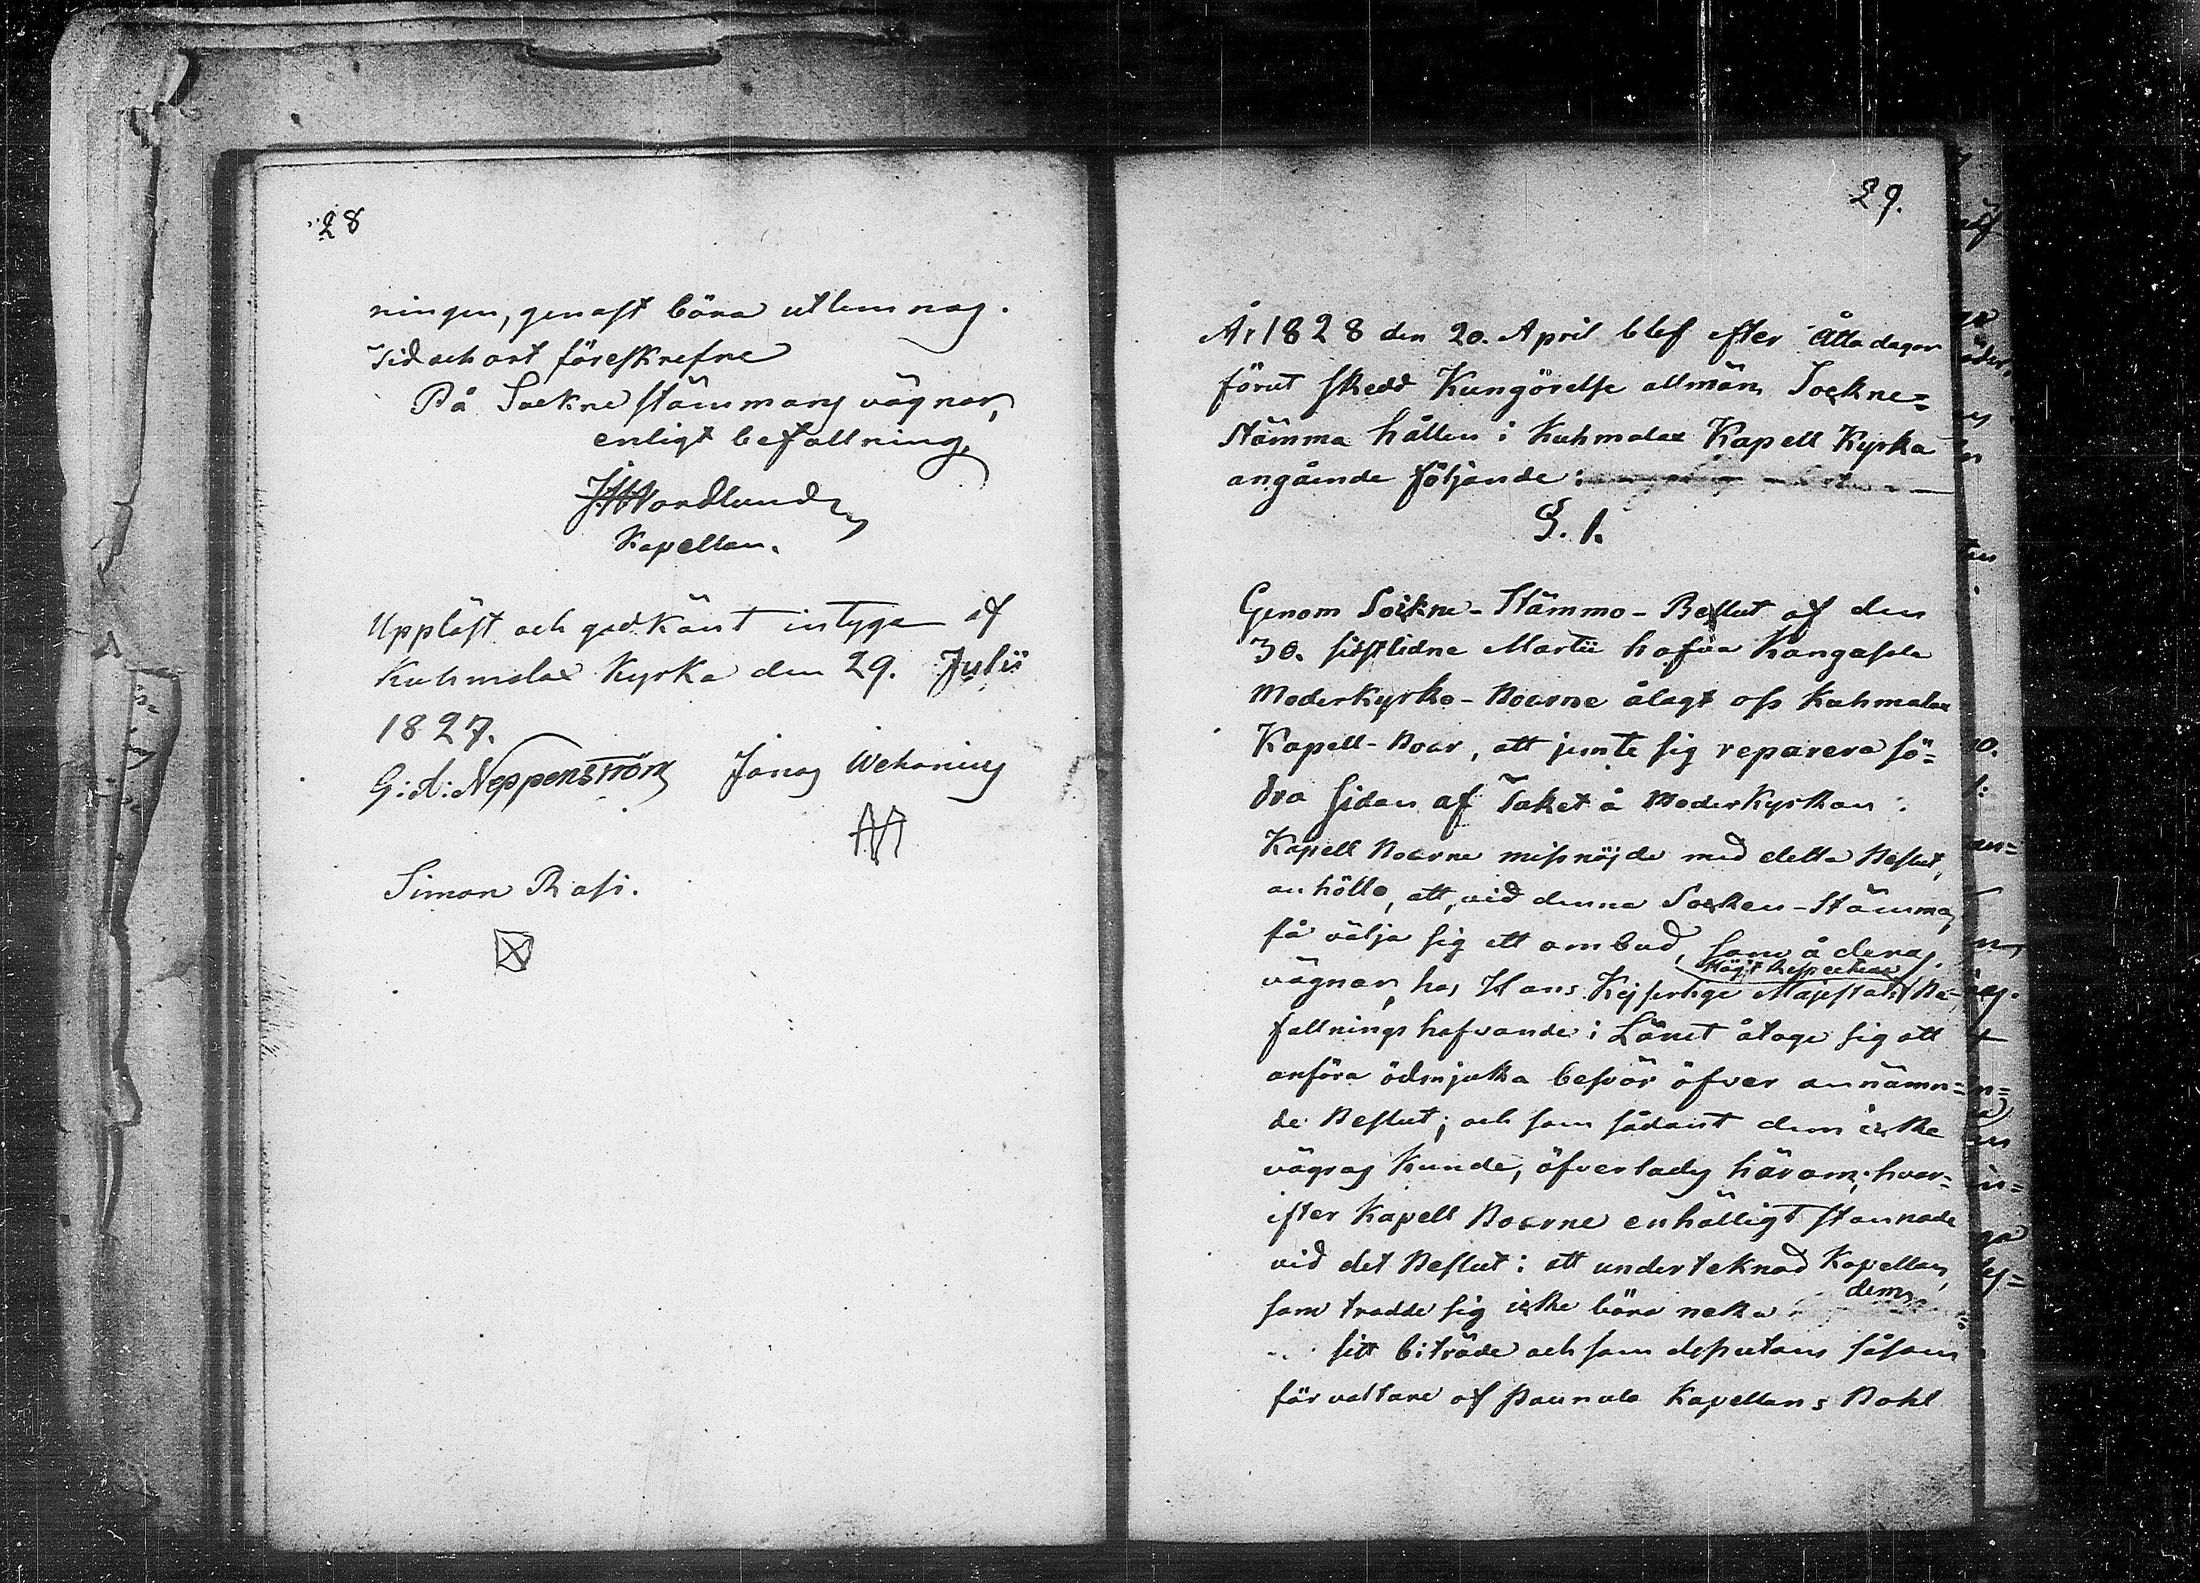 28
ningen, genast böra utlemnas.
Tid och ort föreskrefne
På Sockne stämmans vägnar,
enligt befallning,
Nordlund
Kapellan.
Uppläst och godkänt intyga af
Kuhmalax Kyrka den 29. Julii
1827.
G: A: Neppenström Jonas Wehanius
Simon Rasi.
29.
År 1828 den 20. April blef efter Åtta dagar
förut skedd Kungörelse allmän Sockne=
Stämma hållen i Kuhmalax Kapell Kyrka
angående följande:
§. 1.
Genom Sockne-Stämmo-Beslut af den
30. sistlidne Martii hafva Kangasala
Moderkyrko-Boarne ålagt oss Kuhmalax
Kapell-Boar, att jemte sig reparera sö=
dra sidan af Taket å Moderkyrkan.
Kapell Boarne missnöjde med detta Beslut,
anhöllo, att, vid denna Socken-Stämma,
få välja sig ett ombud, som å deras
vägnar, hos Hans Kejserlige Majestäts Högt Respective Be-
fallningshafvande i Länet åtoge sig att
anföra ödmjuka besvär öfver annämn=
de Beslut; och som sådant dem icke
vägras kunde, öfverlades härom; hvar=
efter Kapell Boarne enhälligt stannade
vid det Beslut: att undertecknad Kapellan,
som trodde sig icke böra neka dem
sitt biträde och som dessutom såsom
förvaltare af Kapellans Bohl